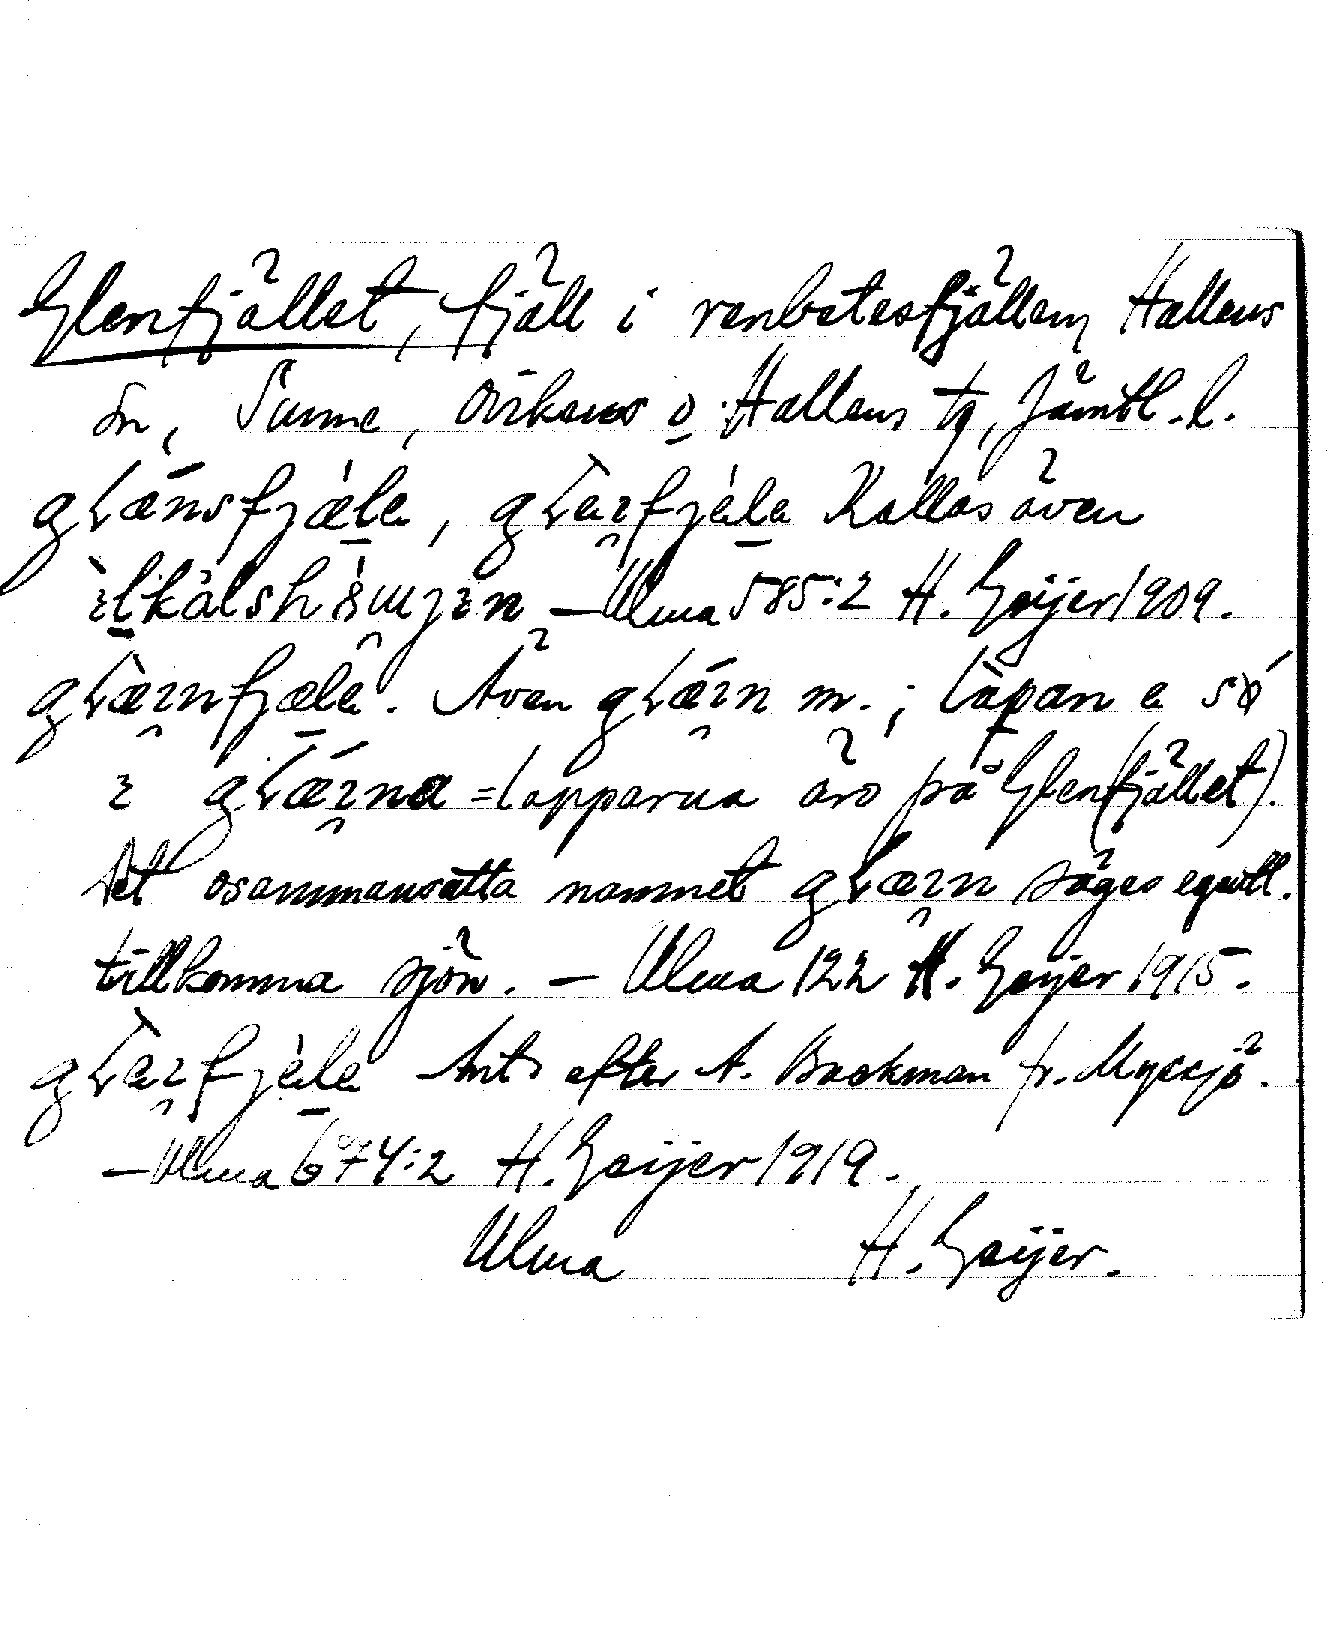 Glenfjället, fjäll i renbetesfjällen, Hallens
sn, Sunne, Ovikens o. Hallens tg, Jämtl. l.
gLænsfjæla, gLæɪfjæla Kallas även
Ulma 585:2 H. Geijer 1909.
gLæɪnfjæla. Även gLǽɪn m.; lȧpan e sǿ
ɪ gLǽɪna = lapparna äro på Glen(fjället).
Det osammansatta namnet gLæɪn säges egentl.
tillkomma sjön. – Ulma 122 H. Geijer 1915.
gLæɪfjæla Ant. efter A. Backman fr. Myssjö.
– Ulma 674:2 H. Geijer 1919.
Ulma H. Geijer.